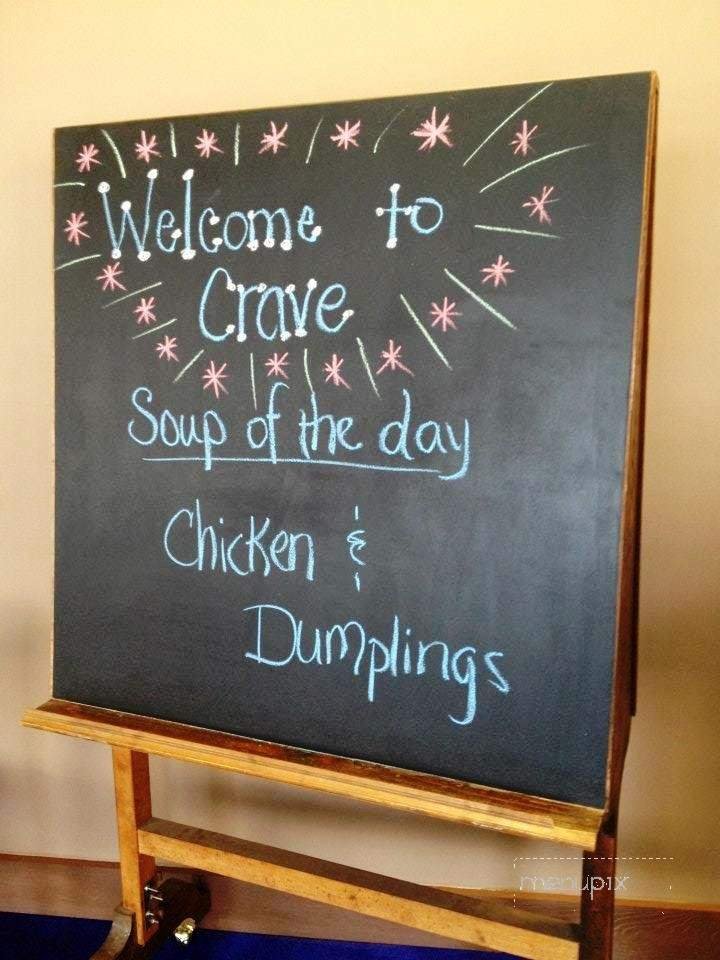 Welcome to
Crave
Soup of the day
Chicken &
Dumplings
menupix